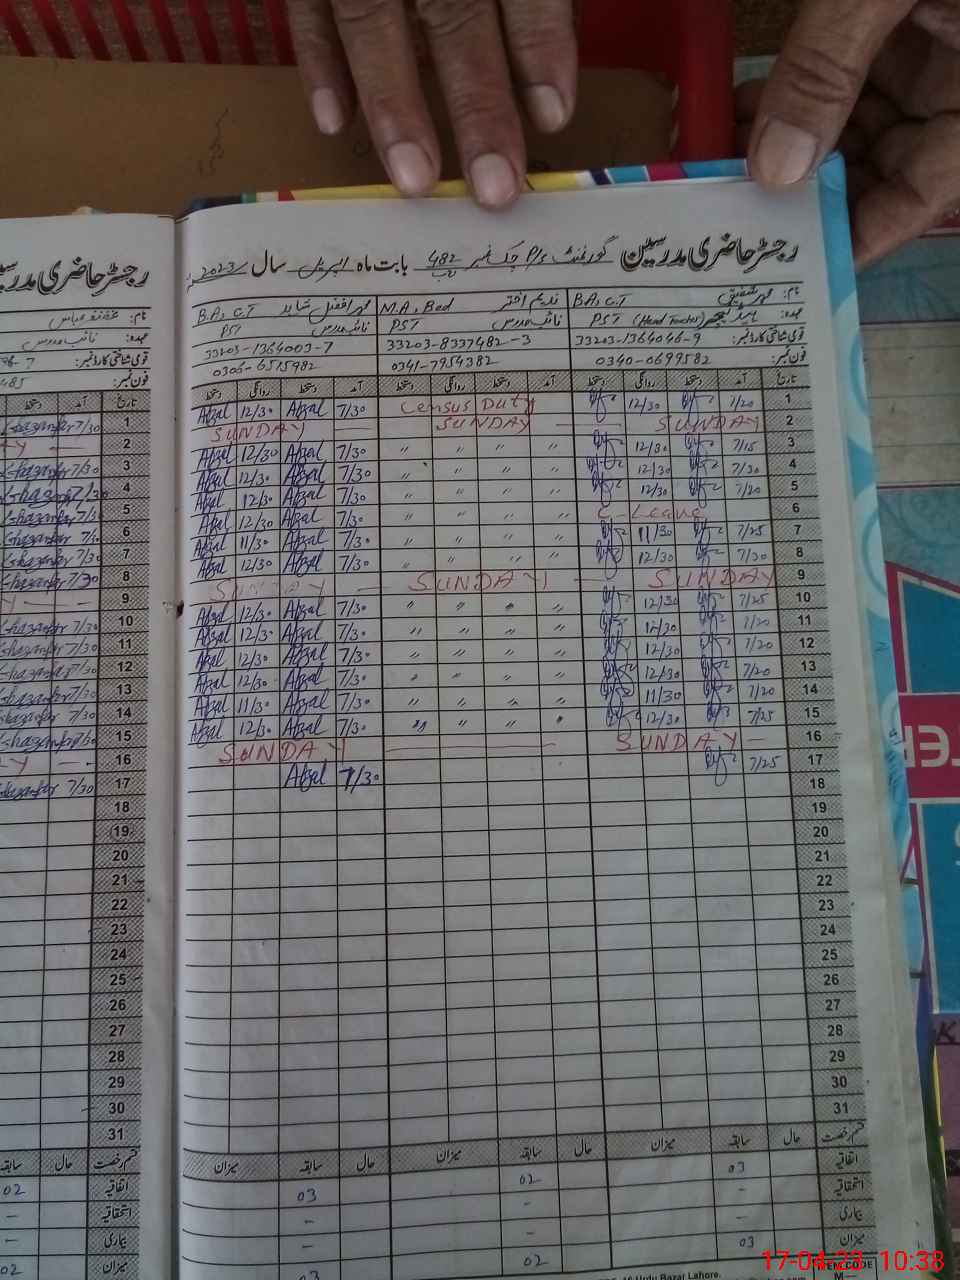 رجسٹر حاضری مدرسین گورنمنٹ P/s چک نمبر 482 بابت ماہ اپریل سال 2023
نام: محمد شفیق B.A, C.T
ندیم اختر M.A, Bed
محمد افضل شاہد B.A, C.T
عہدہ: ہیڈ ٹیچر PST (Head Teacher)
نائب مدرس PST
نائب مدرس PST
قومی شناختی کارڈ نمبر: 33203-1364046-9
33203-8337482-3
33203-1364003-7
فون نمبر: 0340-0699582
0341-7954382
0306-6515982
تاریخ آمد دستخط روانگی دستخط آمد دستخط روانگی دستخط آمد دستخط روانگی دستخط
1 7/20 12/30 Census Duty 7/30 Afzal 12/30 Afzal
2 SUNDAY SUNDAY SUNDAY
3 7/15 12/30 " " " " 7/30 Afzal 12/30 Afzal
4 7/30 12/30 " " " " 7/30 Afzal 12/30 Afzal
5 7/20 12/30 " " " " 7/30 Afzal 12/30 Afzal
6 C-Leave " " " " 7/30 Afzal 12/30 Afzal
7 7/25 11/30 " " " " 7/30 Afzal 11/30 Afzal
8 7/30 12/30 " " " " 7/30 Afzal 12/30 Afzal
9 SUNDAY SUNDAY SUNDAY
10 7/25 12/30 " " " " 7/30 Afzal 12/30 Afzal
11 7/20 12/30 " " " " 7/30 Afzal 12/30 Afzal
12 7/20 12/30 " " " " 7/30 Afzal 12/30 Afzal
13 7/20 12/30 " " " " 7/30 Afzal 12/30 Afzal
14 7/20 11/30 " " " " 7/30 Afzal 11/30 Afzal
15 7/25 12/30 " " " " 7/30 Afzal 12/30 Afzal
16 SUNDAY SUNDAY
17 7/25 7/30 Afzal
18
19
20
21
22
23
24
25
26
27
28
29
30
31
قسم رخصت حال سابقہ میزان حال سابقہ میزان حال سابقہ میزان
اتفاقیہ 03 02 03
استحقاقیہ - - -
بیماری - - -
میزان 03 02 03
رجسٹر حاضری مدرسین
نام: غضنفر عباس
عہدہ: نائب مدرس
قومی شناختی کارڈ نمبر:
فون نمبر:
تاریخ آمد دستخط
1 7/30 Ghazanfar
2
3 7/30 Ghazanfar
4 7/30 Ghazanfar
5 7/30 Ghazanfar
6 7/30 Ghazanfar
7 7/30 Ghazanfar
8 7/30 Ghazanfar
9
10 7/30 Ghazanfar
11 7/30 Ghazanfar
12 7/30 Ghazanfar
13 7/30 Ghazanfar
14 7/30 Ghazanfar
15 7/30 Ghazanfar
16
17 7/30 Ghazanfar
18
19
20
21
22
23
24
25
26
27
28
29
30
31
قسم رخصت حال سابقہ
اتفاقیہ 02
استحقاقیہ -
بیماری -
میزان 02
Urdu Bazar Lahore.
ITEM CODE
17-04-23 10:38